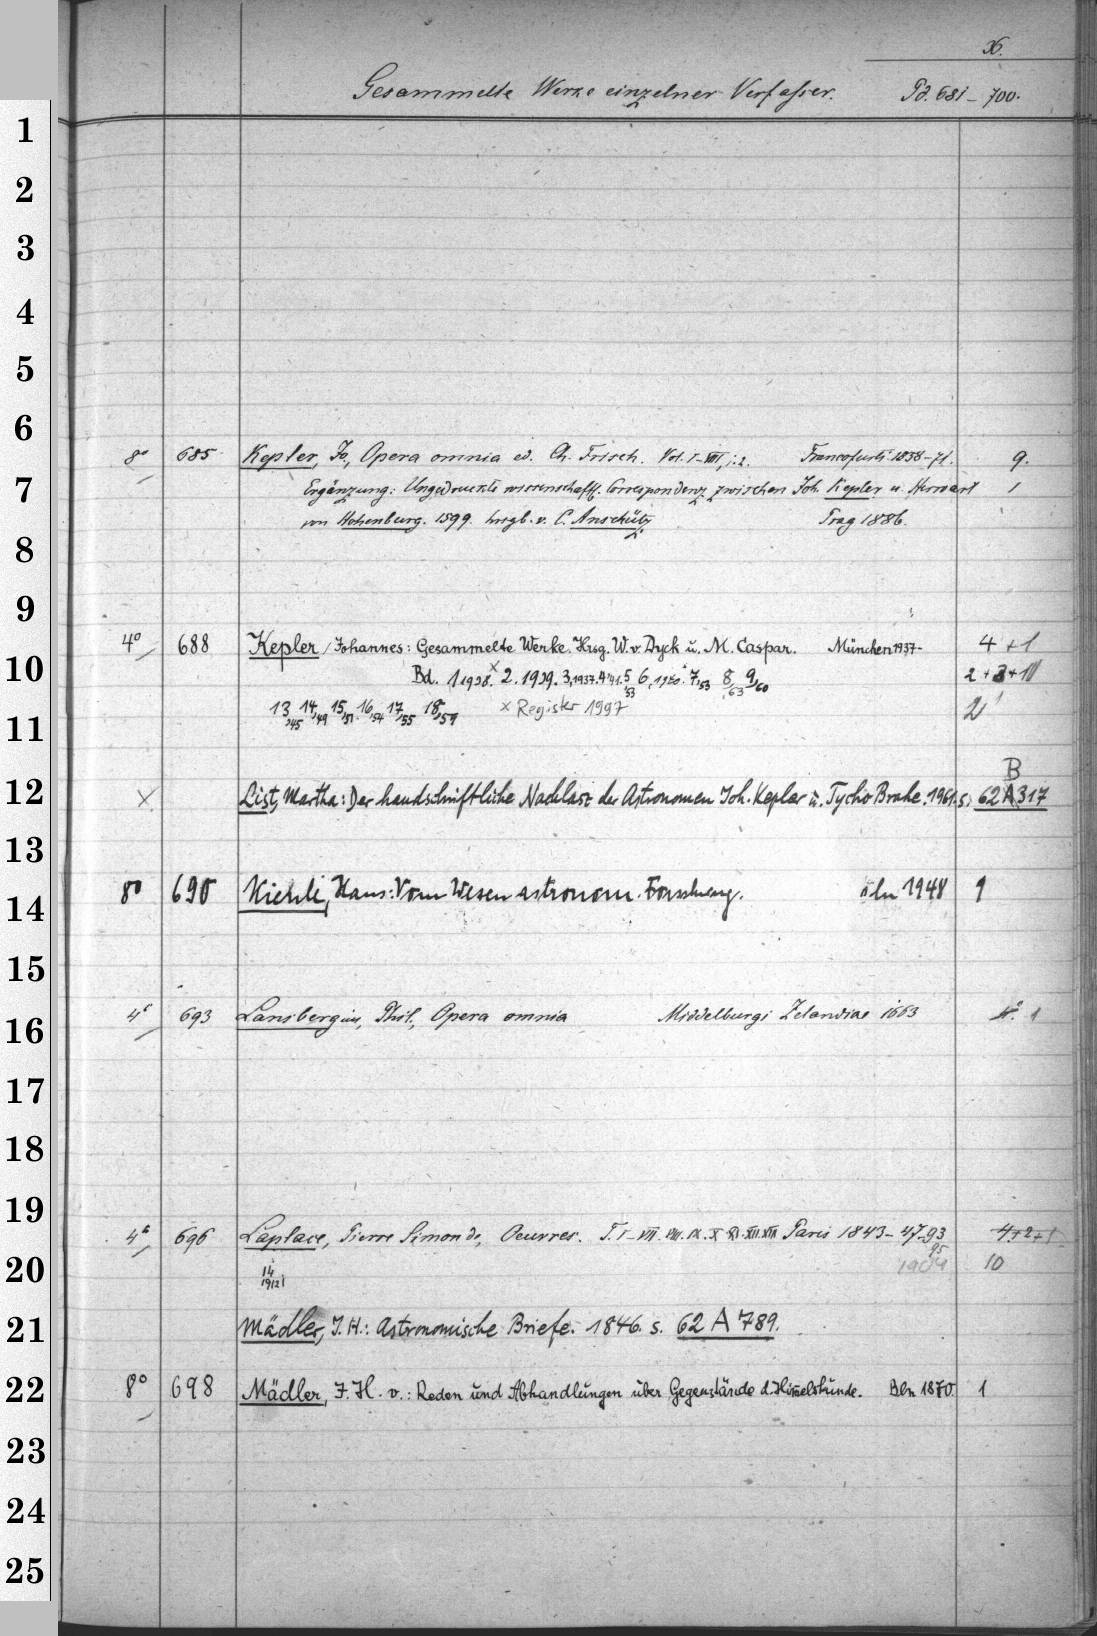 36.
Gesammelte Werke einzelner Verfasser. Pd. 681-700.
1
2
3
4
5
6
8° 685 Kepler, Jo., Opera omnia ed. Ch. Frisch. Vol. I-VIII, 1.2. Francofurti 1858-71. 9.
7 Ergänzung: Ungedruckte wissenschaftl. Correspondenz zwischen Joh. Kepler u. Herwart 1
von Hohenburg. 1599. hrsgb. v. C. Anschütz Prag 1886.
8
9
4° 688 Kepler, Johannes: Gesammelte Werke. Hrsg. W. v. Dyck u. M. Caspar. München 1937- 4+1
10 Bd. 1 1938. x 2. 1939. 3,1937. 4,41. 5,53 6, 7,53 8,63 9,60 2+3+1
13,45 14,49 15,51 16,54 17,55 18,59 x Register 1997 2
11
B
12 x List, Martha: Der handschriftliche Nachlass der Astronomen Joh. Kepler u. Tycho Brahe. 1961. s. 62 A 317
13
8° 690 Kienle, Hans: Vom Wesen astronom. Forschung. 1948 1
14
15
4° 693 Lansbergius, Phil., Opera omnia Middelburgi Zelandiae 1663 1
16
17
18
19
4° 696 Laplace, Pierre Simon de, Oeuvres. T. I-VII. VIII. IX. X XI. XII. XIII Paris 1843-47-93 4+2+1
95
20 14 1912 1904 10
21 Mädler, J. H.: Astronomische Briefe. 1846. s. 62 A 789.
22 8° 698 Mädler, J. H. v.: Reden und Abhandlungen über Gegenstände d. Himmelskunde. Bln 1870. 1
23
24
25